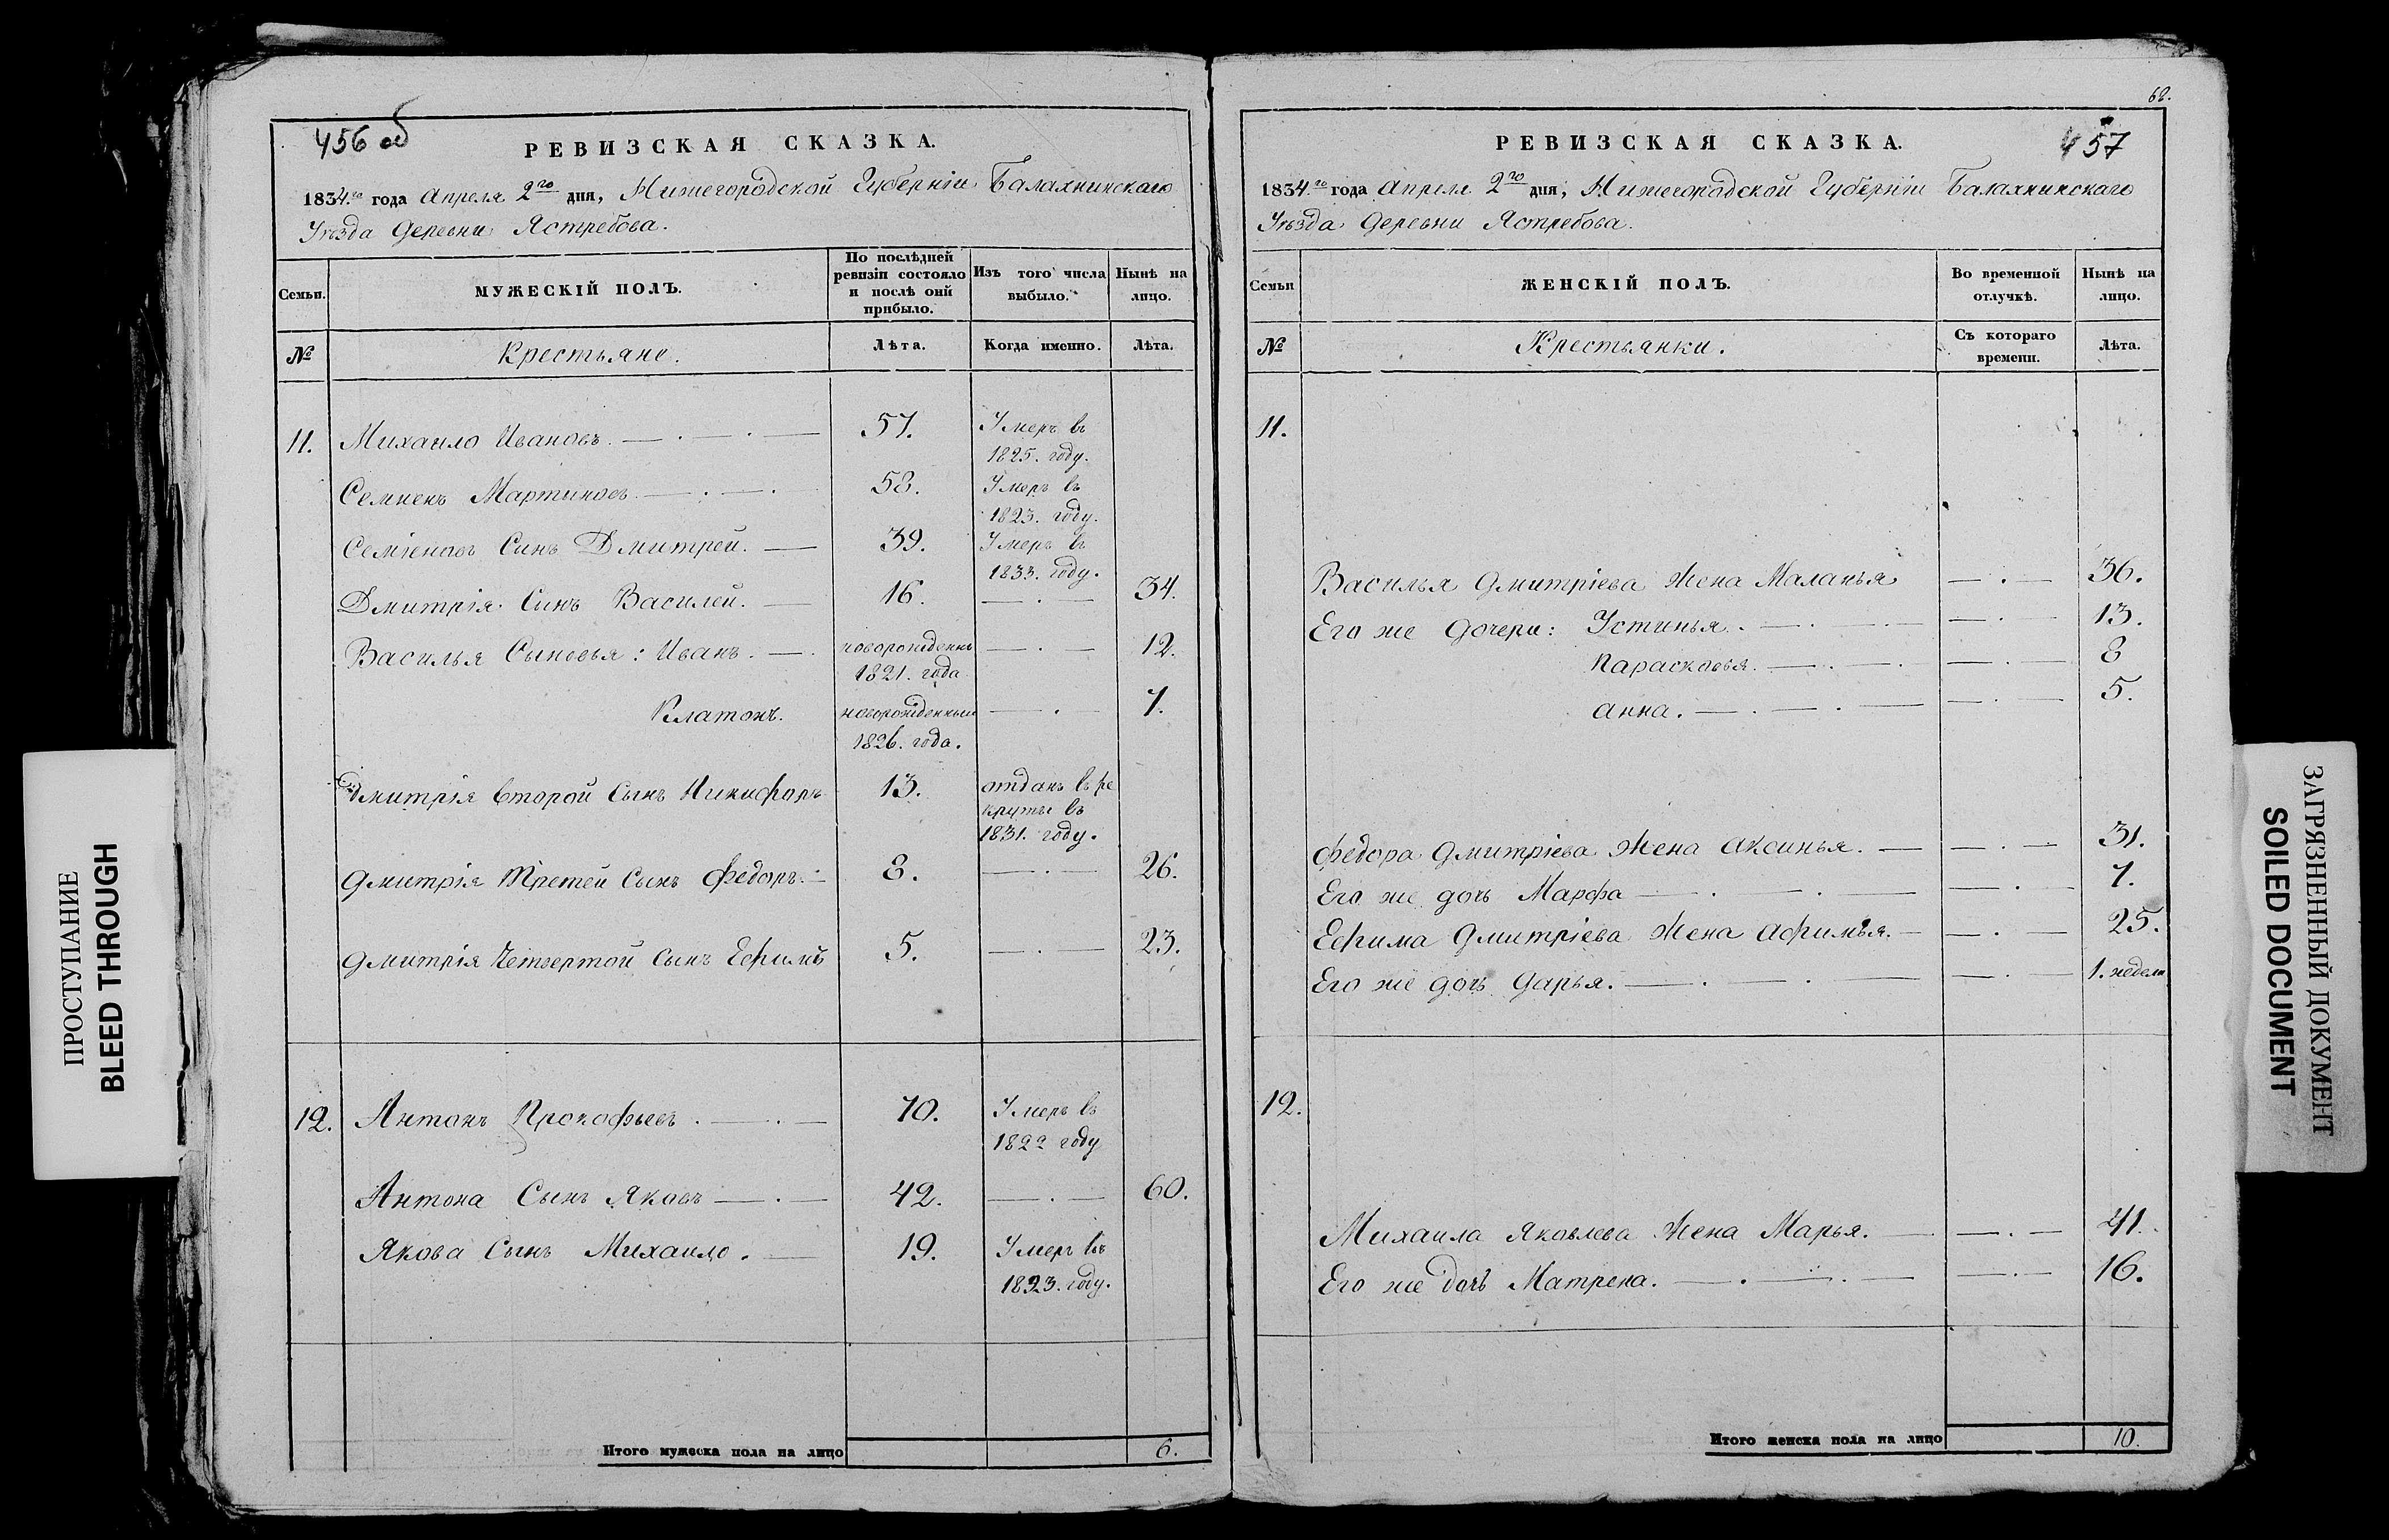 456 об
РЕВИЗСКАЯ СКАЗКА.
1834.го года Апреля 2го дня, Нижегородской Губерніи Балахнинскаго
Уѣзда Деревни Ястребова.
Семьи. МУЖЕСКІЙ ПОЛЪ. По послѣдней ревизіи состояло и послѣ оной прибыло. Изъ того числа выбыло. Нынѣ на лицо.
№ Крестьяне. Лѣта. Когда именно. Лѣта.
11. Михаило Ивановъ. 57. Умеръ въ
1825. году.
Семиенъ Мартиновъ. 58. Умеръ въ
1823. году.
Семіоновъ Сынъ Дмитрей. 39. Умеръ въ
1833. году.
Дмитрія Сынъ Василей. 16. 34.
Василья Сыновья: Иванъ. новорожденны 12.
1821. года
Платонъ. новорожденный 7.
1826. года.
Дмитрія Второй Сынъ Никифоръ 13. отданъ в ре
круты въ
1831. году.
Дмитрія Третей Сынъ Федоръ. 8. 26.
Дмитрія Четвертой Сынъ Ефимъ 5. 23.
12. Антонъ Прокофьевъ. 70. Умеръ въ
1822 году
Антона Сынъ Яковъ 42. 60.
Якова Сынъ Михаило. 19. Умеръ въ
1823. году.
Итого мужеска пола на лицо 6.
68.
457
РЕВИЗСКАЯ СКАЗКА.
1834.го года Апреля 2го дня, Нижегородской Губерніи Балахнинскаго
Уѣзда Деревни Ястребова.
Семьи ЖЕНСКІЙ ПОЛЪ. Во временной отлучкѣ. Нынѣ на лицо.
№ Крестьянки. Съ котораго времени. Лѣта.
11.
Василья Дмитріева Жена Маланья 36.
Его же Дочери: Устинья. 13.
Парасковья. 8
Анна. 5.
Федора Дмитріева Жена Аксинья. 31.
Его же дочь Марфа 7.
Ефима Дмитріева Жена Афимья. 25.
Его же дочь Дарья. 1. недели
12.
Михаила Яковлева Жена Марья. 41.
Его же дочь Матрена. 16.
Итого женска пола на лицо 10.
ПРОСТУПАНИЕ
BLEED THROUGH
ЗАГРЯЗНЕННЫЙ ДОКУМЕНТ
SOILED DOCUMENT